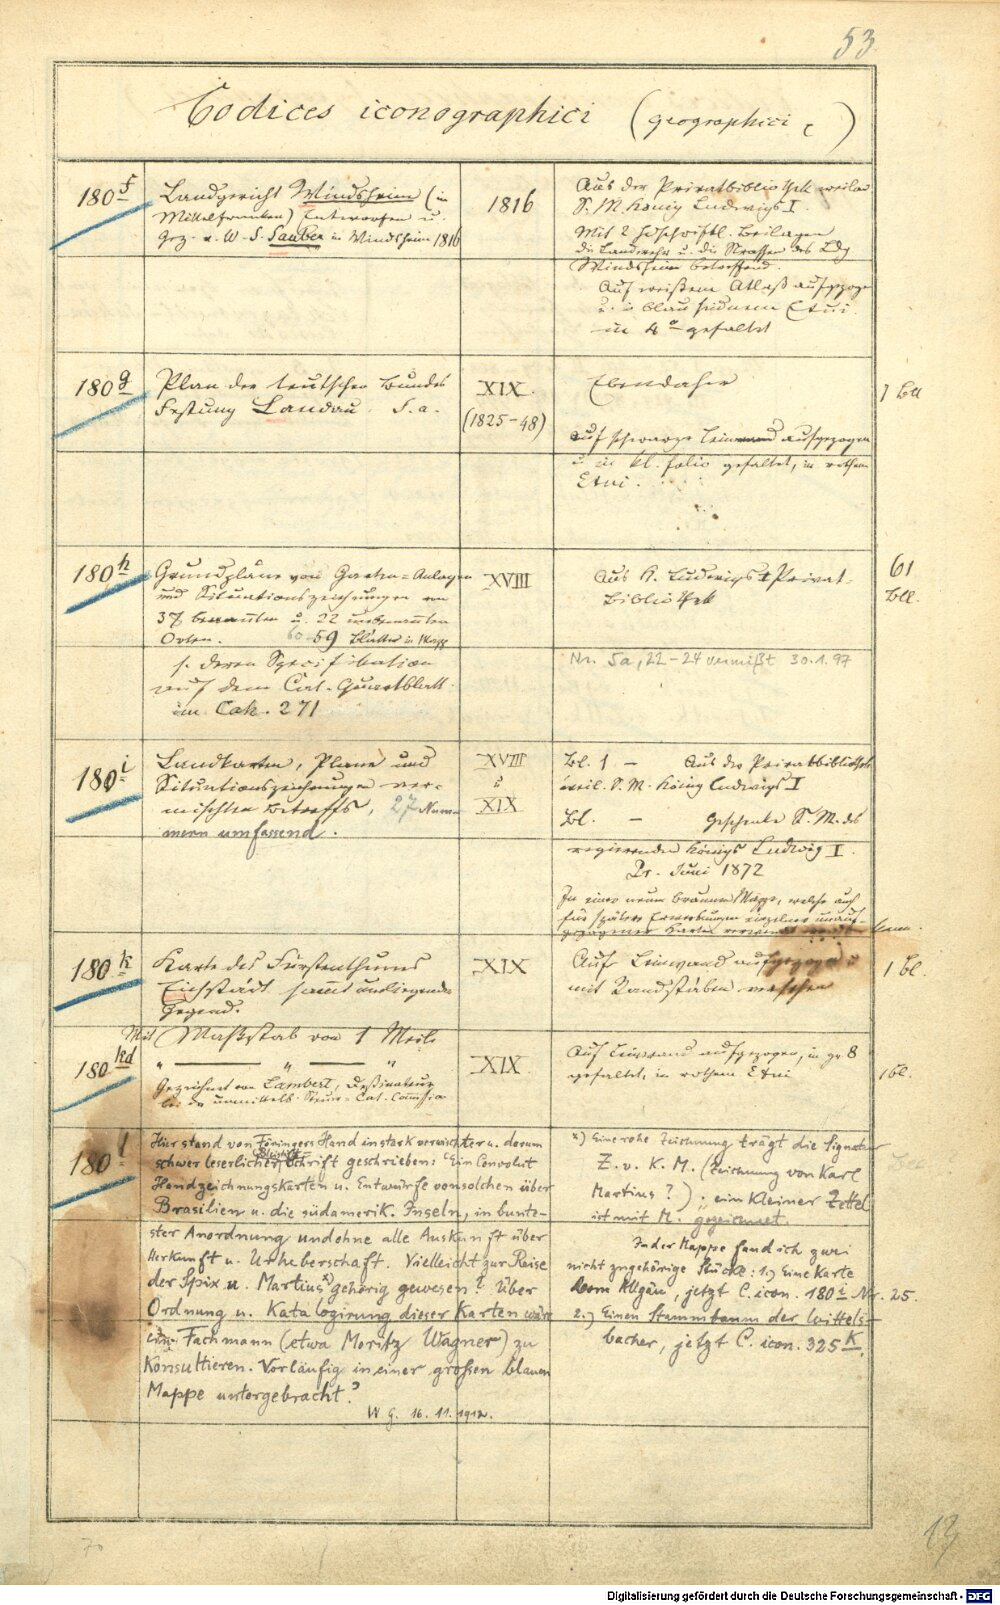 53
Codices iconographici (geographici)
180 f
Landgericht Windsheim (in
Mittelfranken) Entworfen u.
Gez. v. W. S. Sauber in Windsheim 1816
1816
Aus der Privatbibliothek weiland
S. M. König Ludwigs I.
Mit 2 Beilagen
die Landwehr u. die Strassen des Ldg
Windsheim betreffend.
Auf weißem Atlaß aufgezogen
u. in blau seidenem Etui
in 4° gefaltet
180 g
Plan der teutschen Bundes
Festung Landau. S. a.
XIX.
(1825-48)
Ebendaher
1 Bll
auf schwarze Leinwand aufgezogen
u. in kl. folio gefaltet, in rothem
Etui.
180 h
Grundpläne von Garten=Anlagen
und Situationszeichnungen von
37 benannten u. 22 unbenannten
Orten. 60 59 Blätter in Mapp
s. deren Specifikation
auf dem Cat. Quartblatt
im Cat. 271
XVIII
Aus K. Ludwigs I Privat-
Bibliothek
61
Bll.
Nr. 5a, 22-24 vermißt 30.1.97
180 i
Landkarten, Plane und
Situationszeichnungen ver-
mischten Betreffs, 27 Num-
mern umfassend.
XVIII
u
XIX
Bl. 1 – Aus der Privatbibliothek
weil. S. M. König Ludwigs I
Bl. – Geschenke S. M. des
regierenden Königs Ludwig I
Juni 1872
In einer neuen braunen Mappe, welche auch
für spätere Erwerbungen einzelner unauf-
gezogener Karten
180 k
Karte des Fürstenthums
Eichstädt sammt umliegender
Gegend.
XIX
Auf Leinwand aufgezogen u
mit Randstäben versehen
1 Bl.
180 kd
Mit Maßstab von 1 Meile
" — " — "
Gezeichnet von Lambert, Deßinateur
bei der unmittelb. Steuer-Cat. Comißion
XIX
Auf Leinwand aufgezogen, in gr 8
gefaltet, in rothem Etui
1 Bl.
180 l
Hier stand von Föringers Hand in stark verwischter u. darum
schwer leserlicher Bleistift Schrift geschrieben: "Ein Convolut
Handzeichnungskarten u. Entwürfe von solchen über
Brasilien u. die südamerik. Inseln, in bunte-
ster Anordnung und ohne alle Auskunft über
Herkunft u. Urheberschaft. Vielleicht zur Reise
der Spix u. Martius x) gehörig gewesen? Über
Ordnung u. Katalogirung dieser Karten wäre
ein Fachmann (etwa Moritz Wagner) zu
Konsultieren. Vorläufig in einer großen blauen
Mappe untergebracht."
W G. 16. 11. 1912.
x) Eine rohe Zeichnung trägt die Signatur
Z. v. K. M. (Zeichnung von Karl
Martius?); ein kleiner Zettel
ist mit M. gezeichnet.
In der Mappe fand ich zwei
nicht zugehörige Stücke: 1.) Eine Karte
vom Allgäu, jetzt C. icon. 180 i Nr. 25.
2.) Einen Stammbaum der Wittels-
bacher, jetzt C. icon. 325 K.
13
Digitalisierung gefördert durch die Deutsche Forschungsgemeinschaft - DFG